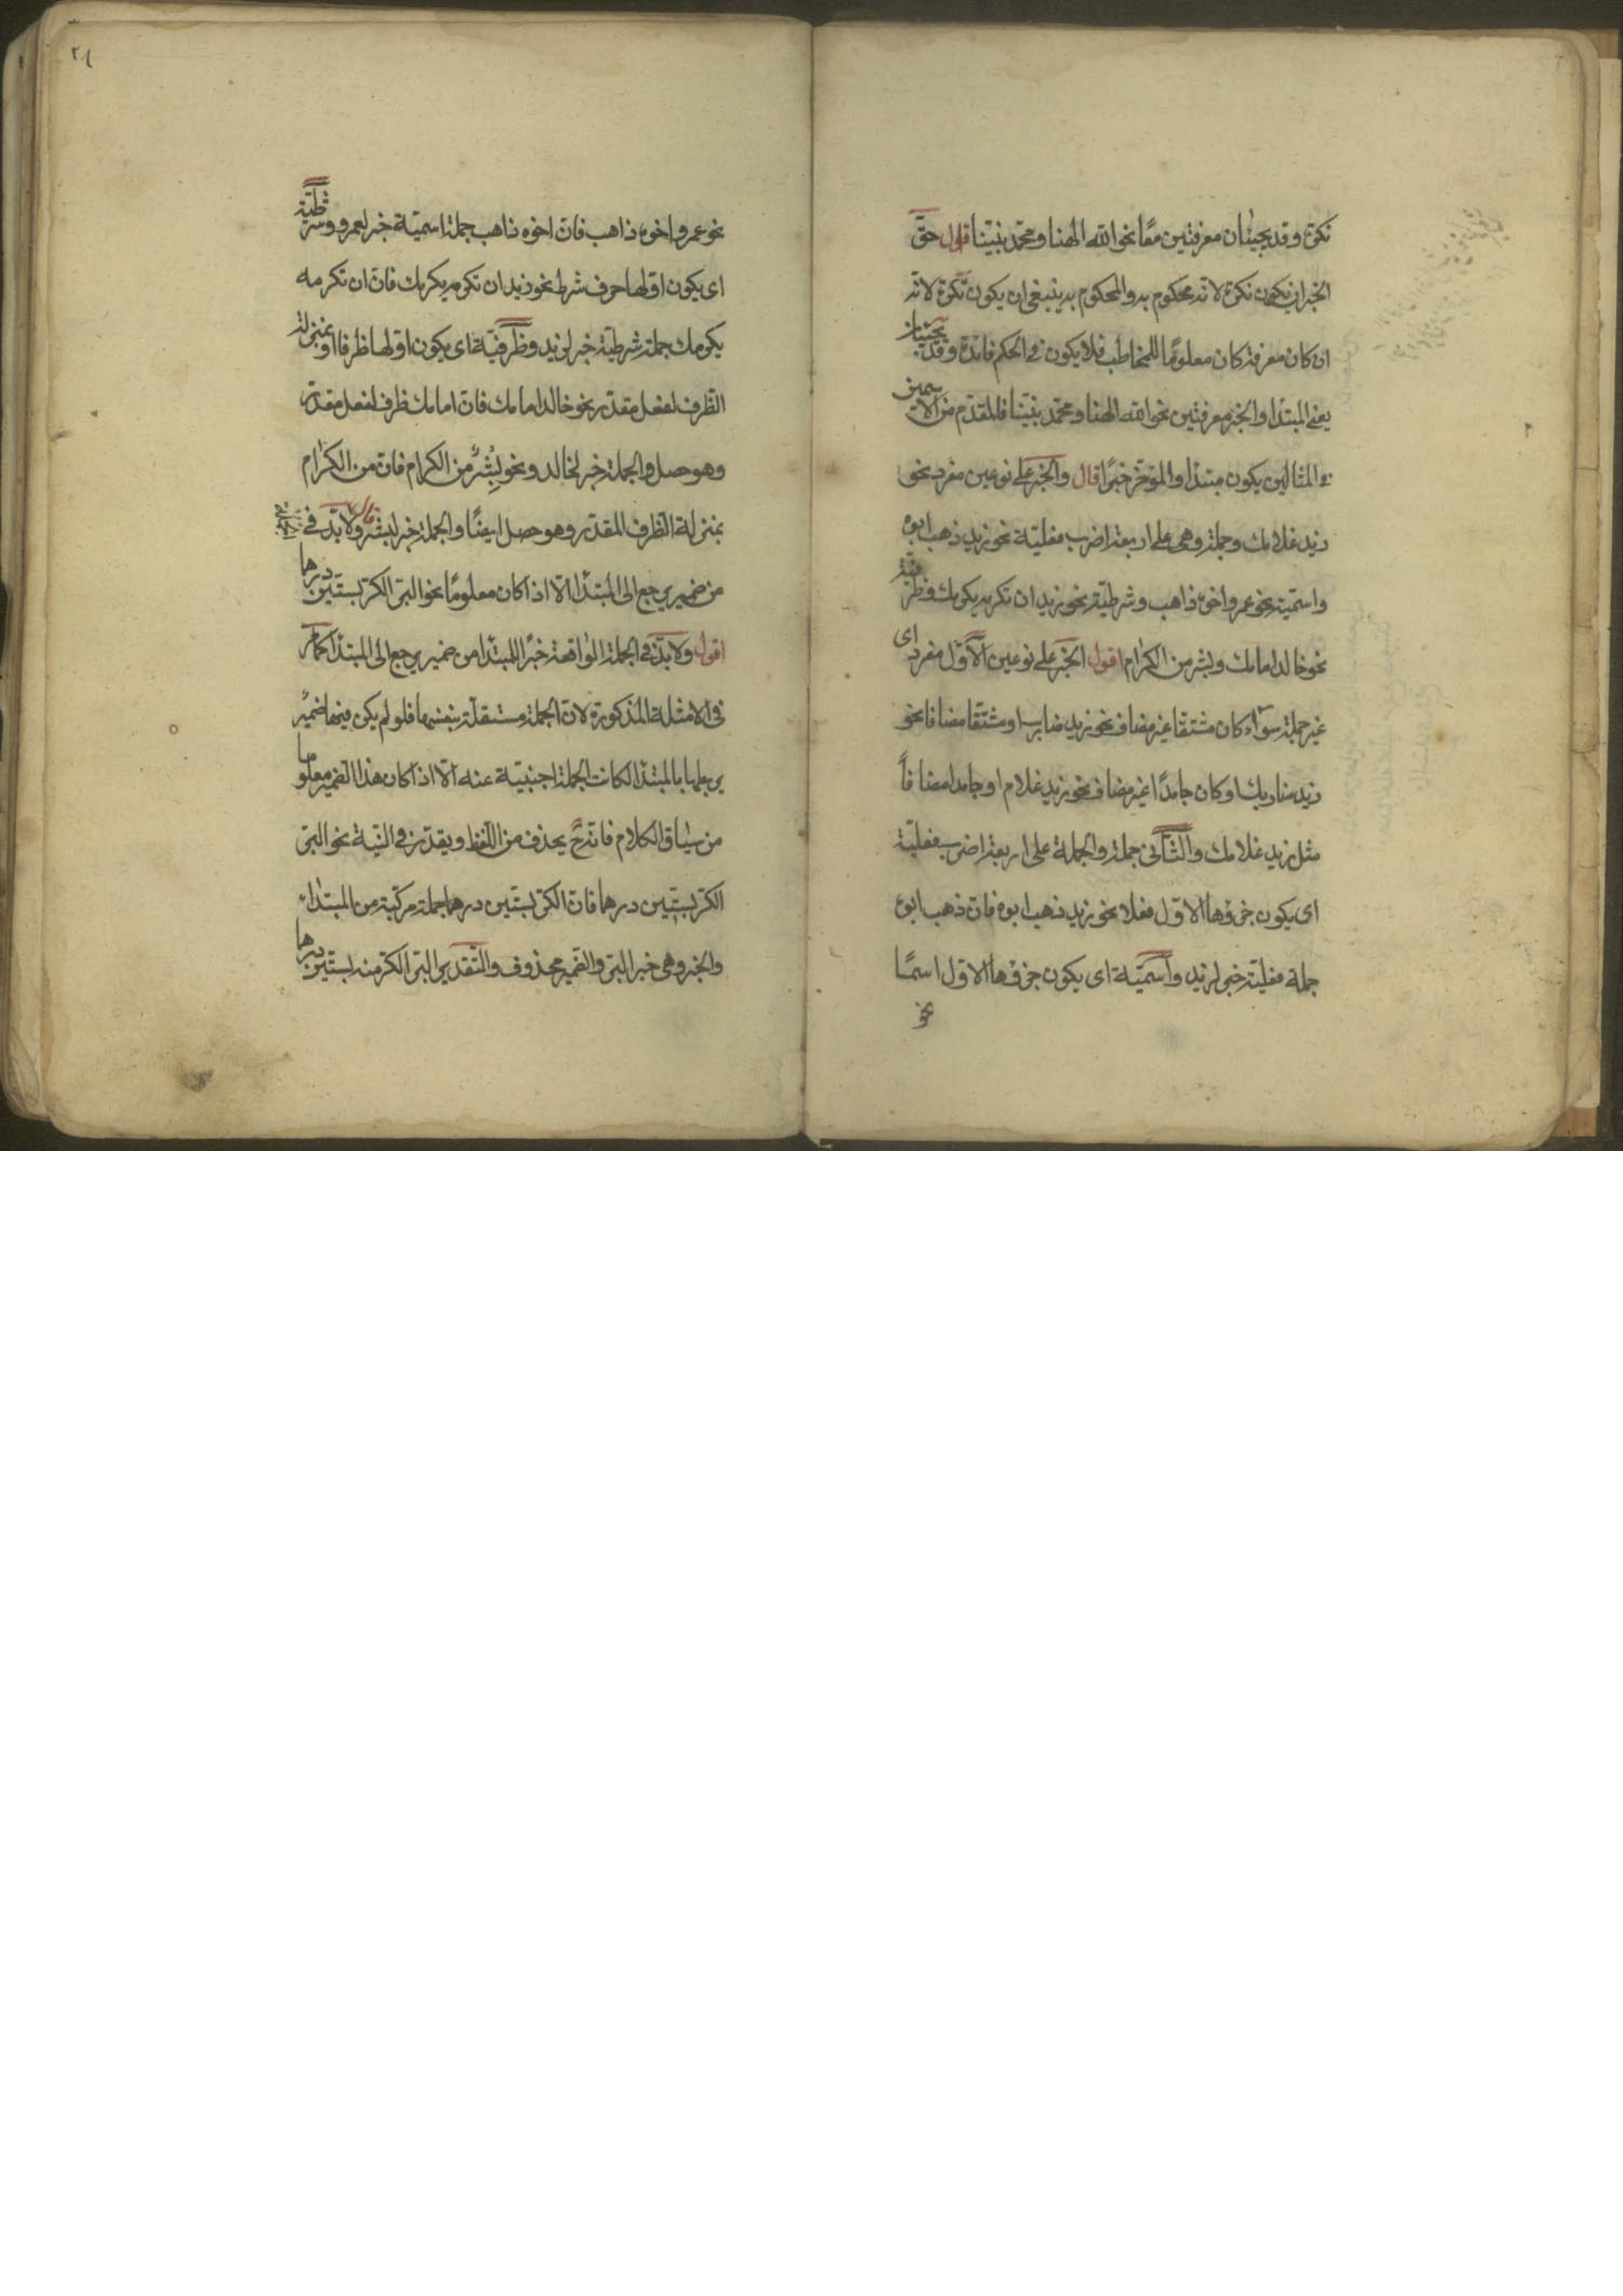 نكرة وقد يجيئان معرفتين معًا نحو الله الهنا ومحمّد نبيّنا اقول حقّ
الخبر ان يكون نكرة لانه محكوم به والمحكوم به ينبغي ان يكون نكرة لانه
ان كان معرفة كان معلومًا للمخاطب فلا يكون في الحكم فائدة وقد يجيئان
يعني المبتدا والخبر معرفتين نحو الله الهنا ومحمّد نبيّنا فالمقدّم من الاسمين
في المثالين يكون مبتدا والمؤخّر خبرًا قال والخبر على نوعين مفرد نحو
زيد غلامك وجملة وهي على اربعة اضرب فعليّة نحو زيد ذهب ابوه
واسميّة نحو عمرو اخوه ذاهب وشرطيّة نحو زيد ان تكرمه يكرمك وظرفيّة
نحو خالد امامك وبشر من الكرام اقول الخبر على نوعين الاوّل مفرد اى
غير جملة سواء كان مشتقا غير مضاف نحو زيد ضارب او مشتقّا مضافا نحو
زيد ضاربك او كان جامدًا غير مضاف نحو زيد غلام او جامدا مضافاً
مثل زيد غلامك والثّانى جملة والجملة على اربعة اضرب فعليّة
اى يكون جزؤها الاوّل فعلا نحو زيد ذهب ابوه فانّ ذهب ابوه
جملة فعليّة خبر لزيد واسميّة اى يكون جزؤها الاوّل اسمًا
نحو
٢١
نحو عمرو اخوه ذاهب فانّ اخوه ذاهب جملة اسميّة خبر لعمرو وشرطيّة
اى يكون اوّلها حرف شرط نحو زيد ان تكرمه يكرمك فانّ ان تكرمه
يكرمك جملة شرطيّة خبر لزيد وظرفيّة اى يكون اوّلها ظرفا او بمنزلة
الظّرف لفعل مقدّر نحو خالد امامك فانّ امامك ظرف لفعل مقدّر
وهو حصل والجملة خبر لخالد ونحو بِشْرٌ من الكرام فانّ من الكرام
بمنزلة الظّرف المقدّر وهو حصل ايضًا والجملة خبر لبشر قال ولا بدّ في الجملة
من ضمير يرجع الى المبتدا الّا اذا كان معلومًا نحو البرّ الكرّ بستّين درهما
اقول ولا بدّ في الجملة الواقعة خبرًا للمبتدا من ضمير يرجع الى المبتدا كما مرّ
في الامثلة المذكورة لانّ الجملة مستقلّة بنفسها فلو لم يكن فيها ضمير
يربطها بالمبتدا لكانت الجملة اجنبيّة عنه الّا اذا كان هذا الضّمير معلوما
من سياق الكلام فانّه ح يحذف من اللّفظ ويقدّر في النّيّة نحو البرّ
الكرّ بستّين درهما فانّ الكرّ بستّين درهما جملة مركّبة من المبتداء
والخبر وهى خبر البرّ والضّمير محذوف والتّقدير البرّ الكرّ منه بستّين درهما